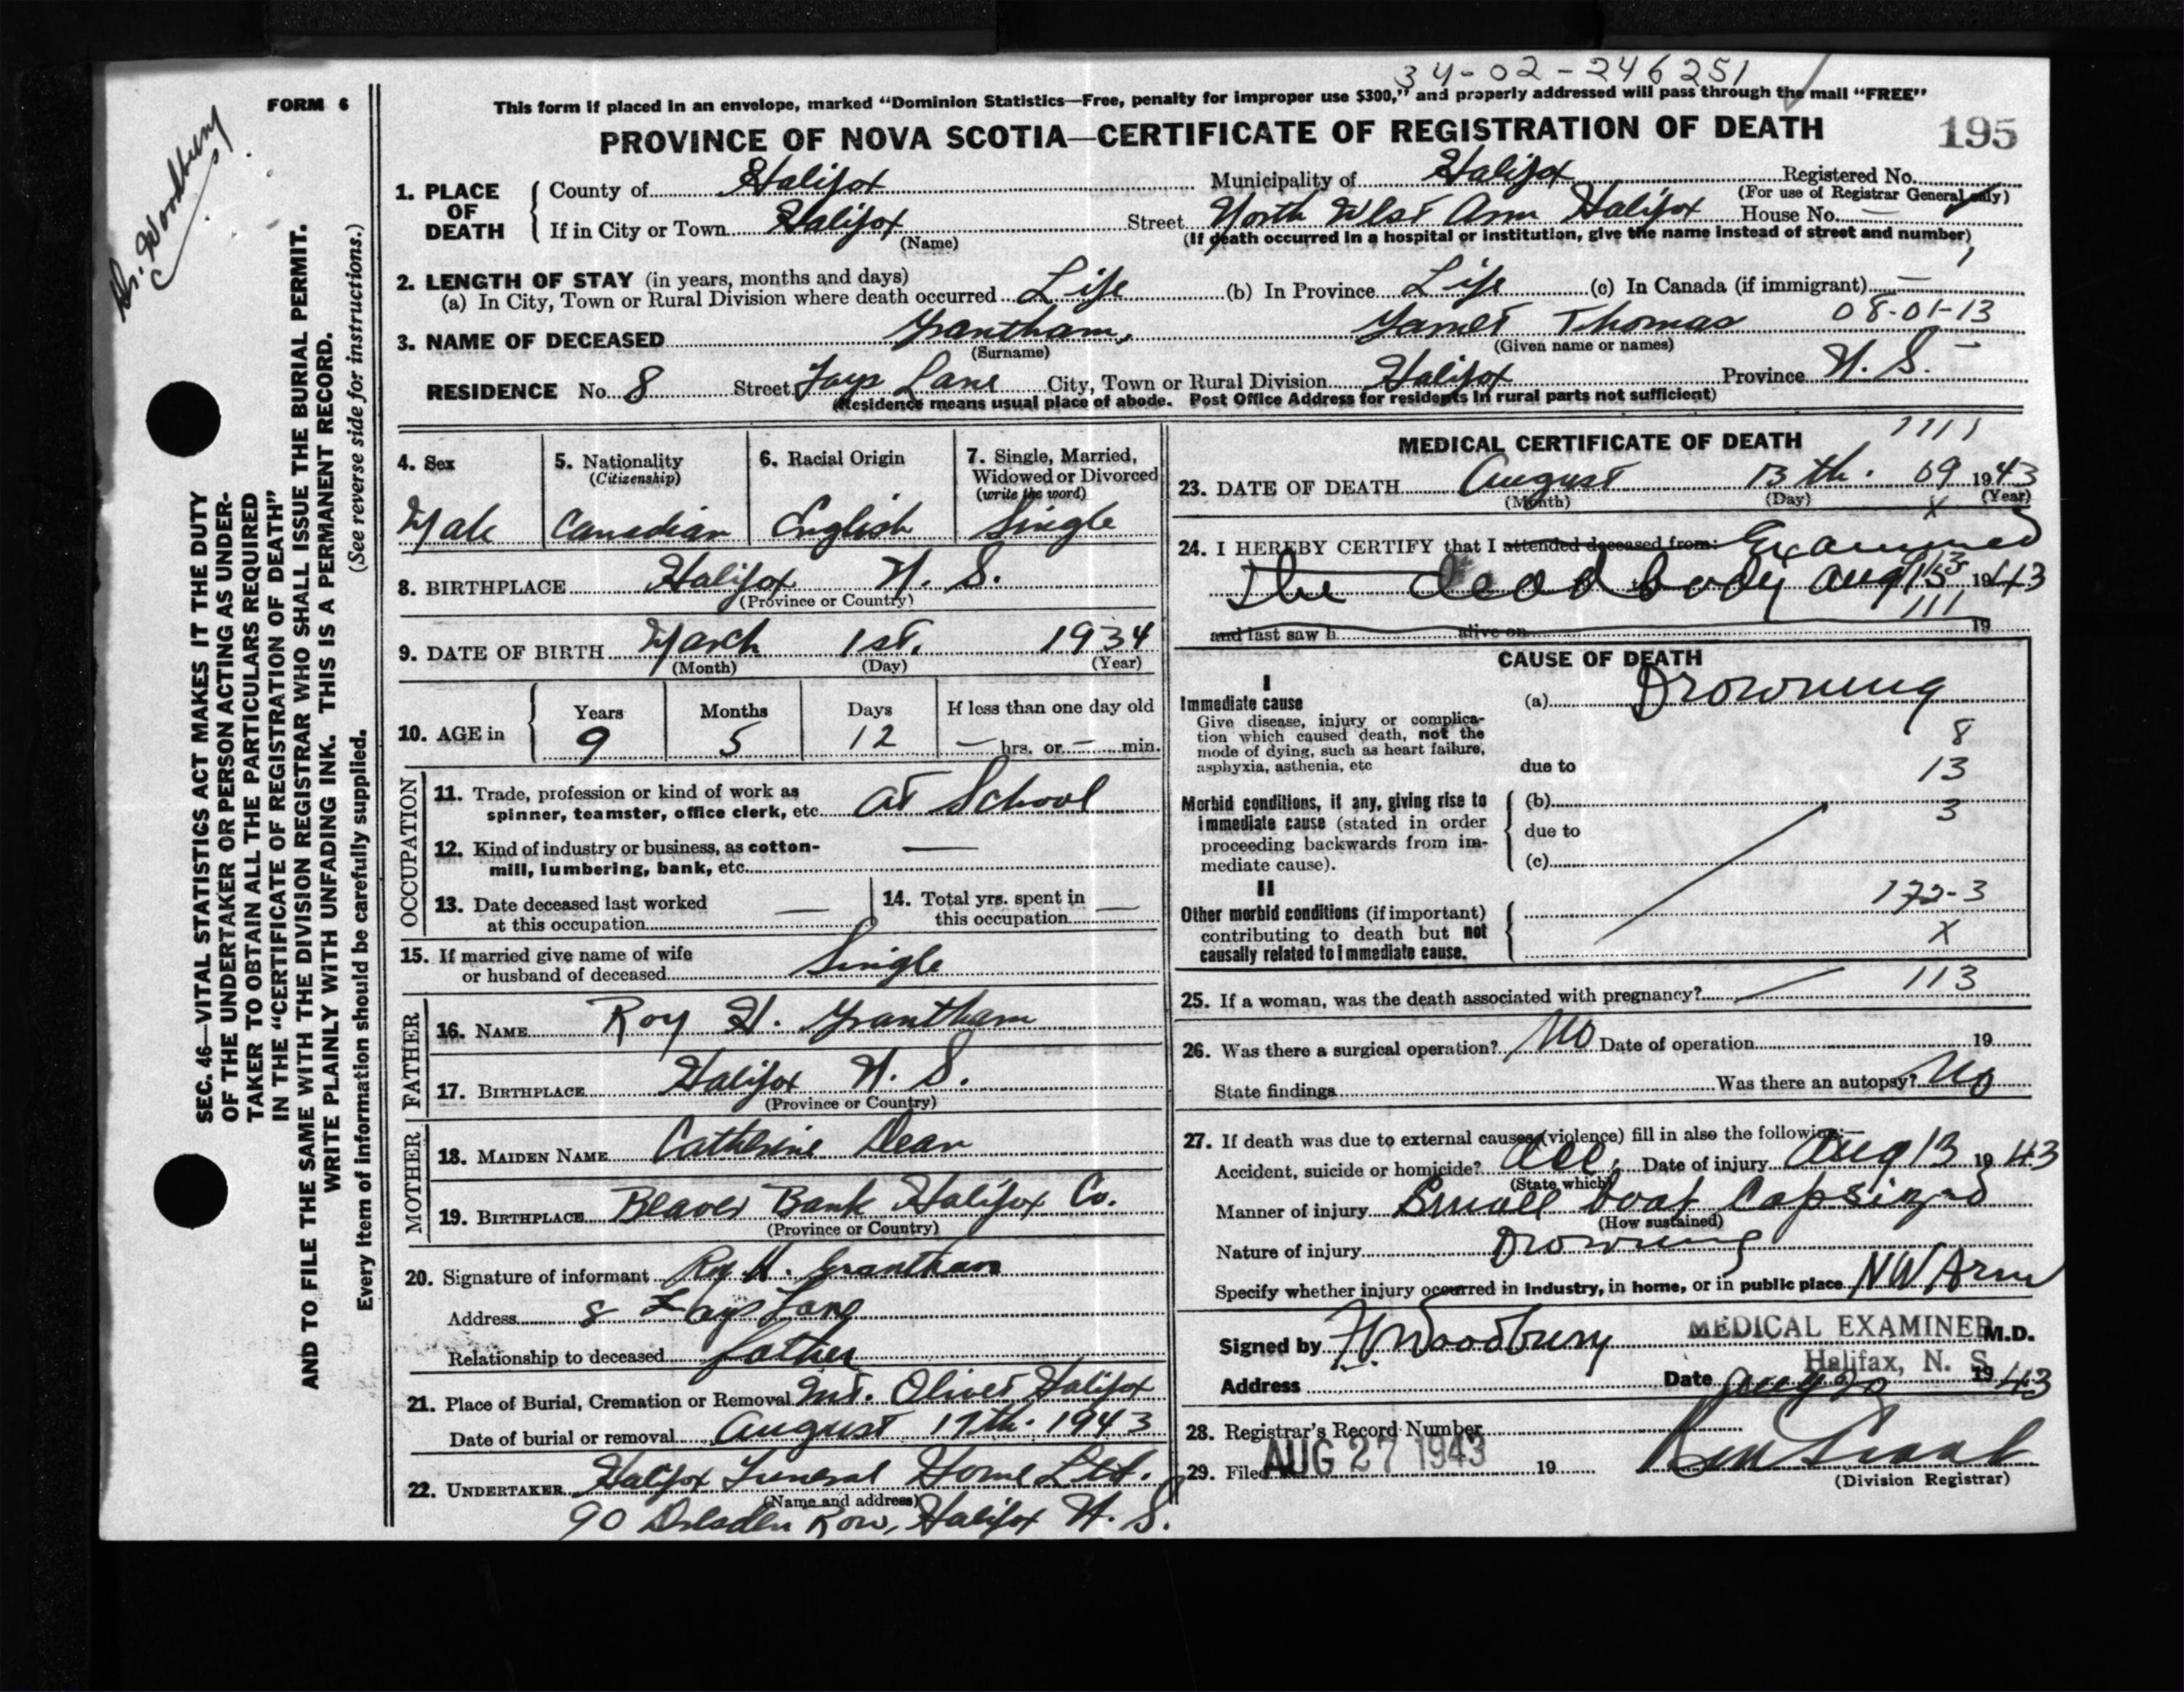 34-02-246251
FORM 6
This form if placed in an envelope, marked “Dominion Statistics—Free, penalty for improper use $300,” and properly addressed will pass through the mail “FREE”
PROVINCE OF NOVA SCOTIA—CERTIFICATE OF REGISTRATION OF DEATH 195
Dr. Woodbury
SEC. 46—VITAL STATISTICS ACT MAKES IT THE DUTY
OF THE UNDERTAKER OR PERSON ACTING AS UNDER-
TAKER TO OBTAIN ALL THE PARTICULARS REQUIRED
IN THE “CERTIFICATE OF REGISTRATION OF DEATH”
AND TO FILE THE SAME WITH THE DIVISION REGISTRAR WHO SHALL ISSUE THE BURIAL PERMIT.
WRITE PLAINLY WITH UNFADING INK. THIS IS A PERMANENT RECORD.
Every item of information should be carefully supplied. (See reverse side for instructions.)
1. PLACE OF DEATH County of Halifax Municipality of Halifax Registered No.
(For use of Registrar General only)
If in City or Town Halifax Street North West Arm Halifax House No. —
(Name) (If death occurred in a hospital or institution, give the name instead of street and number)
2. LENGTH OF STAY (in years, months and days)
(a) In City, Town or Rural Division where death occurred Life (b) In Province Life (c) In Canada (if immigrant) —
08-01-13
3. NAME OF DECEASED Grantham, James Thomas
(Surname) (Given name or names)
RESIDENCE No. 8 Street Fays Lane City, Town or Rural Division Halifax Province N. S.
(Residence means usual place of abode. Post Office Address for residents in rural parts not sufficient)
4. Sex 5. Nationality 6. Racial Origin 7. Single, Married,
(Citizenship) Widowed or Divorced
(write the word)
Male Canadian English Single
8. BIRTHPLACE Halifax N. S.
(Province or Country)
9. DATE OF BIRTH March 1st. 1934
(Month) (Day) (Year)
10. AGE in Years Months Days If less than one day old
9 5 12 — hrs. or — min.
OCCUPATION
11. Trade, profession or kind of work as
spinner, teamster, office clerk, etc. At School
12. Kind of industry or business, as cotton-
mill, lumbering, bank, etc. —
13. Date deceased last worked — 14. Total yrs. spent in
at this occupation this occupation —
15. If married give name of wife
or husband of deceased Single
FATHER
16. NAME Roy H. Grantham
17. BIRTHPLACE Halifax N. S.
(Province or Country)
MOTHER
18. MAIDEN NAME Catherine Dean
19. BIRTHPLACE Beaver Bank Halifax Co.
(Province or Country)
20. Signature of informant Roy H. Grantham
Address 8 Fays Lane
Relationship to deceased father
21. Place of Burial, Cremation or Removal Mt. Olivet Halifax
Date of burial or removal August 17th. 1943
22. UNDERTAKER Halifax Funeral Home Ltd.
(Name and address)
90 Dresden Row, Halifax N. S.
MEDICAL CERTIFICATE OF DEATH 1111
23. DATE OF DEATH August 13th. 09 1943
(Month) (Day) (Year)
X
24. I HEREBY CERTIFY that I attended deceased from: Examined
the dead body Aug 13 1943
111
and last saw h alive on 19
CAUSE OF DEATH
I
Immediate cause (a) Drowning
Give disease, injury or complica-
tion which caused death, not the
mode of dying, such as heart failure,
asphyxia, asthenia, etc due to
8
13
3
Morbid conditions, if any, giving rise to (b)
immediate cause (stated in order due to
proceeding backwards from im-
mediate cause). (c)
II
Other morbid conditions (if important)
contributing to death but not
causally related to immediate cause.
X
113
25. If a woman, was the death associated with pregnancy?
26. Was there a surgical operation? No Date of operation 19
State findings Was there an autopsy? No
27. If death was due to external causes (violence) fill in also the following:—
Accident, suicide or homicide? Acc. Date of injury Aug 13 1943
(State which)
Manner of injury Small boat Capsized
(How sustained)
Nature of injury Drowning
Specify whether injury occurred in industry, in home, or in public place NW Arm
Signed by F Woodbury MEDICAL EXAMINER M.D.
Halifax, N. S.
Address Date Aug 20 1943
28. Registrar's Record Number
29. Filed AUG 27 1943 19
(Division Registrar)